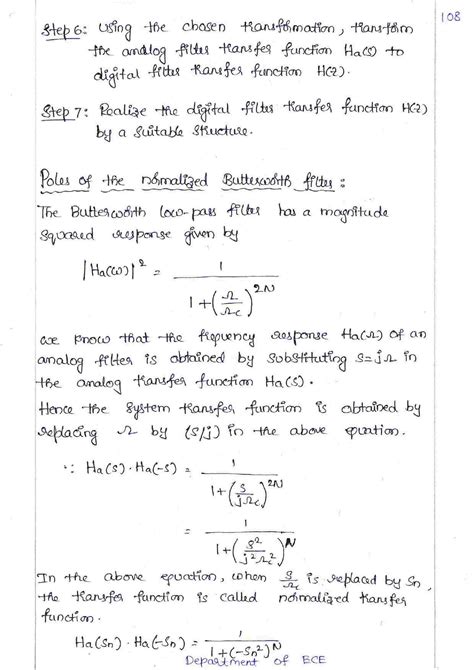 108
Step 6: Using the chosen transformation, transform
the analog filter transfer function Ha(s) to
digital filter transfer function H(z).
Step 7: Realize the digital filter transfer function H(z)
by a suitable structure.
Poles of the normalized Butterworth filter:
The Butterworth low-pass filter has a magnitude
squared response given by
|Ha(ω)|² = 1 / (1+(Ω/Ωc)^2N)
we know that the frequency response Ha(Ω) of an
analog filter is obtained by substituting s=jΩ in
the analog transfer function Ha(s).
Hence the system transfer function is obtained by
replacing Ω by (s/j) in the above equation.
∵ Ha(s)·Ha(-s) = 1 / (1+(s/jΩc)^2N)
= 1 / (1+(s²/j²Ωc²)^N)
In the above equation, when s/Ωc is replaced by Sn,
the transfer function is called normalized transfer
function.
Ha(Sn)·Ha(-Sn) = 1 / (1+(-Sn²)^N)
Department of ECE